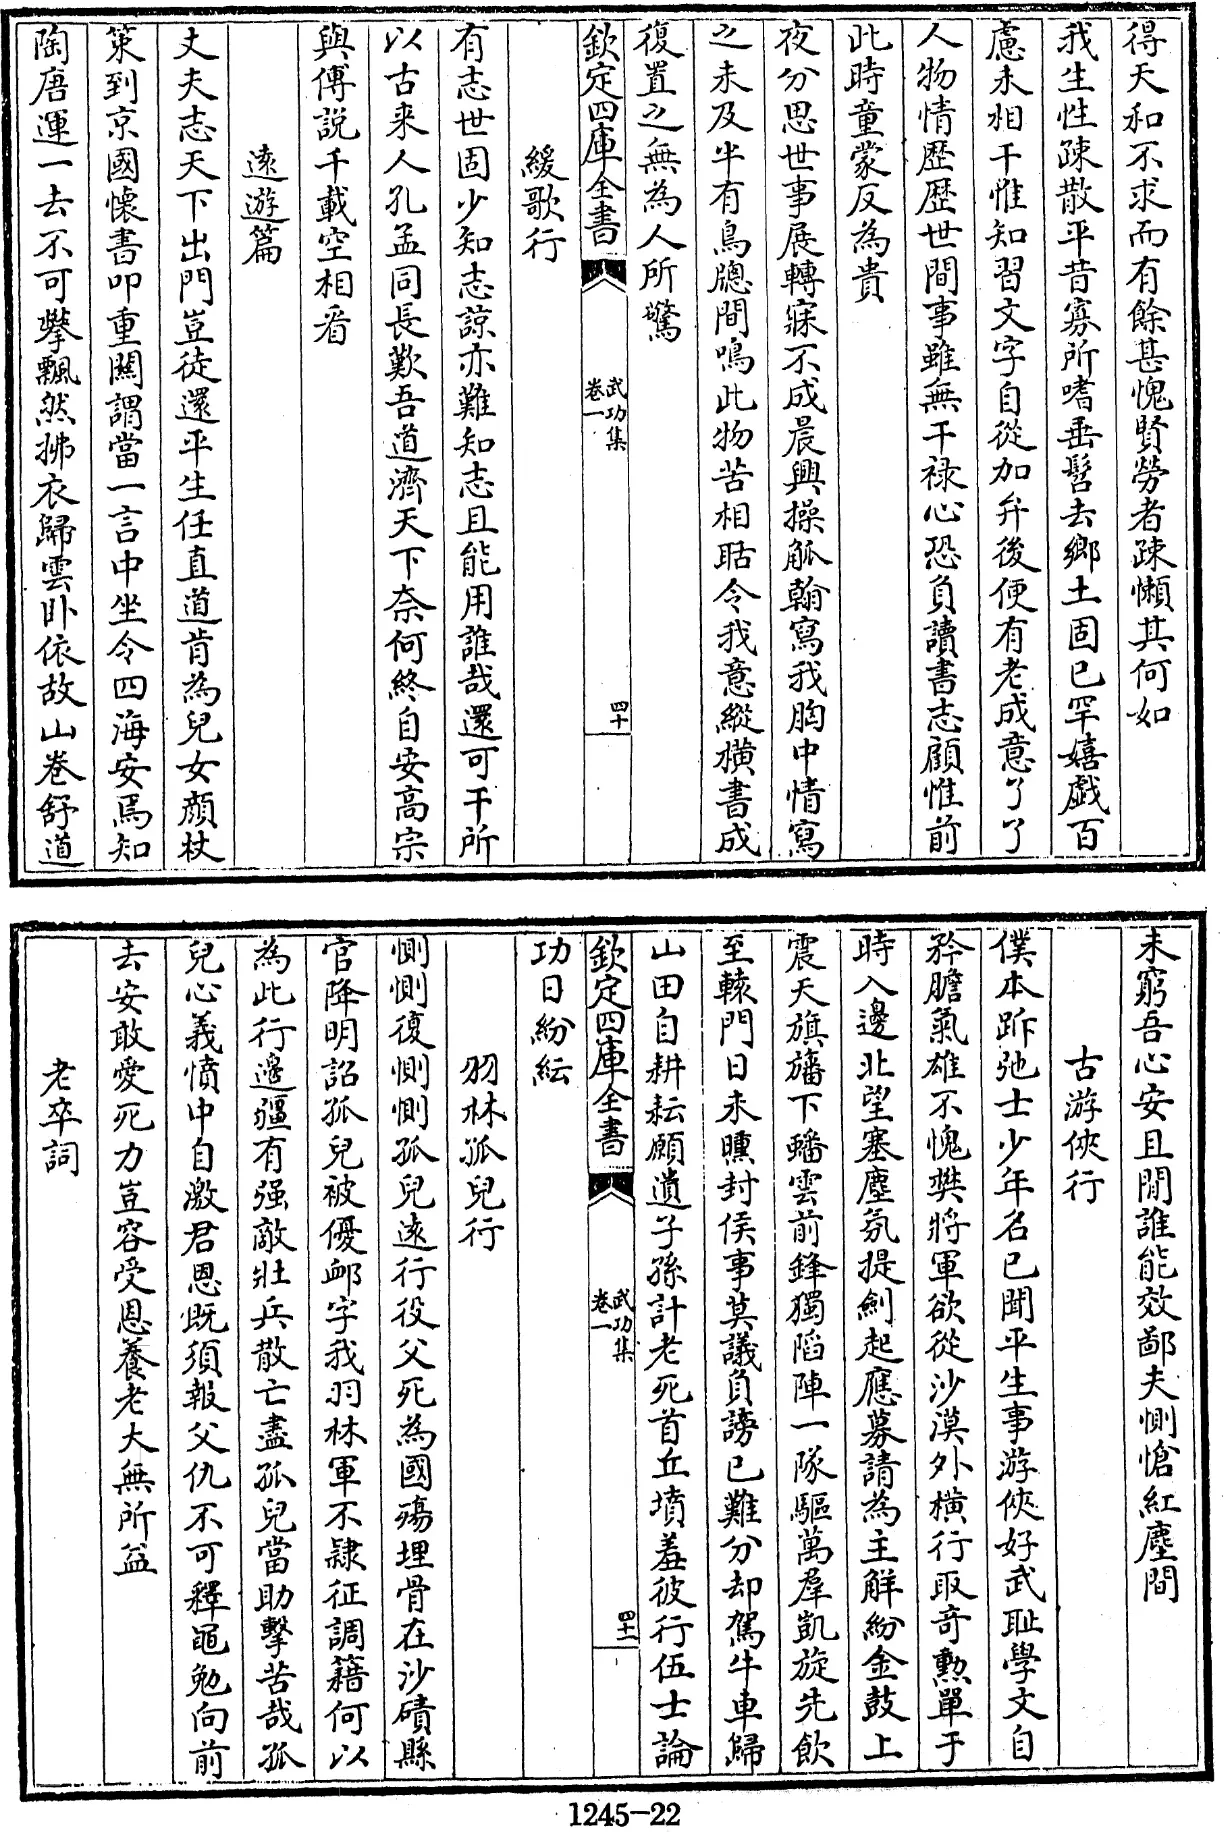 得天和不求而有餘甚愧賢勞者疎懶其何如
我生性疎散平昔寡所嗜垂髫去鄉土固已罕嬉戯百
慮未相干惟知習文字自從加弁後便有老成意了了
人物情歴歴世間事雖無干禄心恐負讀書志顧惟前
此時童蒙反為貴
夜分思世事展轉寐不成晨興操觚翰寫我胸中情寫
之未及半有鳥牕間鳴此物苦相聒令我意縱横書成
復置之無為人所驚
欽定四庫全書
武功集
卷一
四十
緩歌行
有志世固少知志諒亦難知志且能用誰哉還可干所
以古来人孔孟同長歎吾道濟天下奈何終自安高宗
與傅説千載空相看
逺遊篇
丈夫志天下出門豈徒還平生任直道肯為兒女顔杖
策到京國懷書叩重關謂當一言中坐令四海安焉知
陶唐運一去不可攀飄然拂衣歸雲卧依故山卷舒道
未窮吾心安且閒誰能效鄙夫惻愴紅塵間
古游俠行
僕本跅弛士少年名已聞平生事游俠好武耻學文自
矜膽氣雄不愧樊將軍欲從沙漠外横行取奇勲單于
時入邊北望塞塵氛提劍起應募請為主解紛金鼓上
震天旗旛下蟠雲前鋒獨陷陣一隊驅萬羣凱旋先飲
至轅門日未曛封侯事莫議負謗已難分却駕牛車歸
山田自耕耘願遺子孫計老死首丘墳羞彼行伍士論
欽定四庫全書
武功集
卷一
四十一
功日紛紜
羽林孤兒行
惻惻復惻惻孤兒逺行役父死為國殤埋骨在沙磧縣
官降明詔孤兒被優衈字我羽林軍不隷征調籍何以
為此行邉疆有强敵壯兵散亡盡孤兒當助擊苦哉孤
兒心義憤中自激君恩既須報父仇不可釋黽勉向前
去安敢愛死力豈容受恩養老大無所益
老卒詞
1245-22